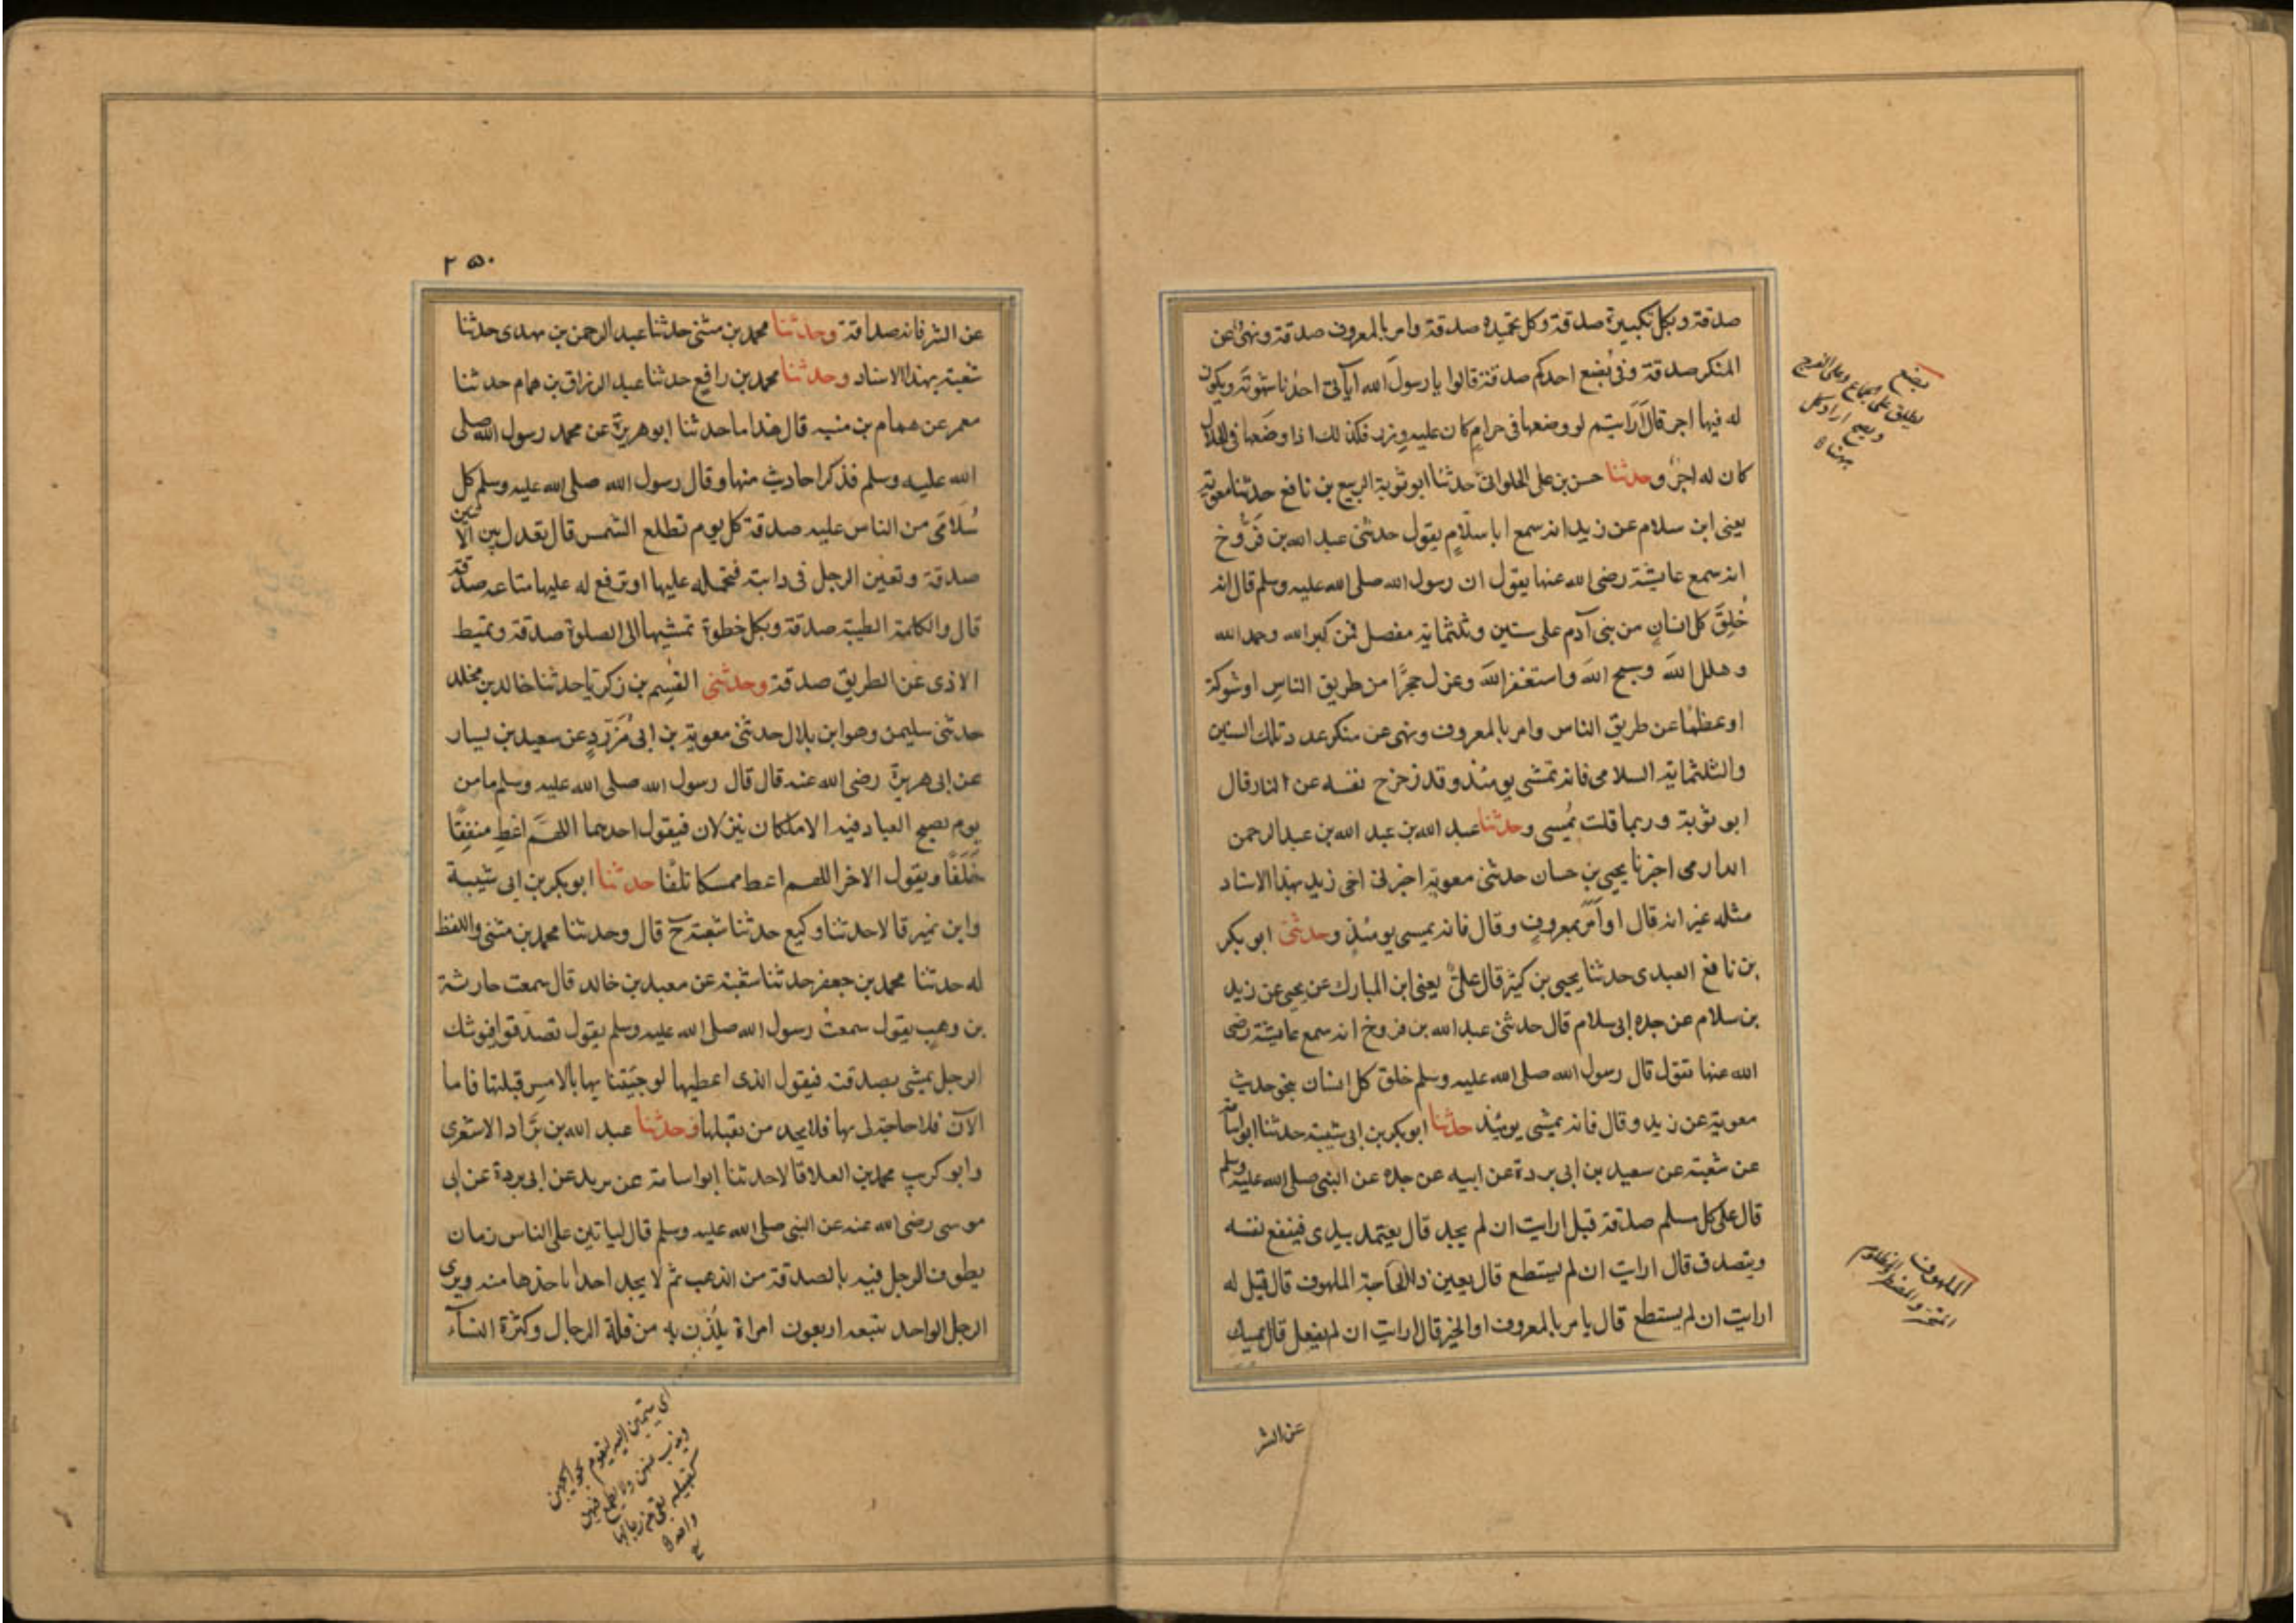 صدقة وبكل تكبيرة صدقة وكل تحميده صدقة وامر بالمعروف صدقة ونهى عن
المنكر صدقة وفى بُضع احدكم صدقة قالوا يا رسول الله أيأتى احدنا شهوته ويكون
له فيها اجر قال أرأيتم لو وضعها فى حرام كان عليه وزر فكذلك اذا وضعها فى الحلال
كان له اجرٌ وحدثنا حسن بن على الحلوانى حدثنا ابو توبة الربيع بن نافع حدثنا معوية
يعنى ابن سلام عن زيد انه سمع ابا سلّامٍ يقول حدثنى عبد الله بن فَرُّوخ
انه سمع عايشة رضى الله عنها يقول ان رسول الله صلى الله عليه وسلم قال انه
خُلِقَ كل انسانٍ من بنى آدم على ستين وثلثماية مفصل فمن كبر الله وحمد الله
وهلل الله وسبح الله واستغفر الله وعزل حجرًا من طريق الناسِ او شوكة
او عظمًا عن طريق الناس وامر بالمعروف ونهى عن منكر عدد تلك الستين
والثلثماية السلامى فانه تمشى يومئذ وقد زحزح نفسه عن النار قال
ابو توبة وربما قلت يُمسى وحدثنا عبد الله بن عبد الله بن عبد الرحمن
الدارمى اخبرنا يحيى بن حسان حدثنى معوية اخبرنى اخى زيد بهذا الاسناد
مثله غير انه قال او أمَرَ بمعروفٍ وقال فانه يمسى يومئذٍ وحدثنى ابو بكر
بن نافع العبدى حدثنا يحيى بن كثير قال علىٌّ يعنى ابن المبارك عن يحيى عن زيد
بن سلام عن جده ابى سلام قال حدثنى عبد الله بن فروخ انه سمع عايشة رضى
الله عنها تقول قال رسول الله صلى الله عليه وسلم خلق كل انسان بنحو حديث
معوية عن زيد وقال فانه يمشى يومئذ حدثنا ابو بكر بن ابى شيبة حدثنا ابو اسامة
عن شعبة عن سعيد بن ابى بردة عن ابيه عن جده عن النبى صلى الله عليه وسلم
قال على كل مسلم صدقة قيل ارايت ان لم يجد قال يعتمد بيدى فينفع نفسه
ويتصدق قال ارايت ان لم يستطع قال يعين ذا الحاجة الملهوف قال قيل له
ارايت ان لم يستطع قال يامر بالمعروف او الخير قال ارايت ان لم يفعل قال يمسك
بضع
يطلق على الجماع وعلى الفرج
ويصح ارادة كل
ههنا
الملهوف
المتحسر والمضطر والمظلوم
عن الشر
٢٥٠
عن الشر فانه صداقة وحدثنا محمد بن مثنى حدثنا عبد الرحمن بن مهدى حدثنا
شعبة بهذا الاسناد وحدثنا محمد بن رافع حدثنا عبد الرزاق بن همام حدثنا
معمر عن همام بن منبه قال هذا ما حدثنا ابو هريرة عن محمد رسول الله صلى
الله عليه وسلم فذكر احاديث منها وقال رسول الله صلى الله عليه وسلم كل
سُلَامَى من الناس عليه صدقة كل يوم تطلع الشمس قال تعدل بين الاثنين
صدقة وتعين الرجل فى دابته فتحمله عليها او ترفع له عليها متاعه صدقة
قال والكلمة الطيبة صدقة وبكل خطوة تمشيها الى الصلوة صدقة وتميط
الاذى عن الطريق صدقة وحدثنى القسِم بن زكريا حدثنا خالد بن مخلد
حدثنى سليمن وهو ابن بلال حدثنى معوية بن ابى مُزَرّدٍ عن سعيد بن يسار
عن ابى هريرة رضى الله عنه قال قال رسول الله صلى الله عليه وسلم ما من
يوم يصبح العباد فيه الا ملكان ينزلان فيقول احدهما اللهمَّ اعْطِ منفِقًا
خَلَفًا ويقول الاخر اللهم اعط ممسكا تلفًا حدثنا ابو بكر بن ابى شيبة
وابن نمير قالا حدثنا وكيع حدثنا شعبة ح قال وحدثنا محمد بن مثنى واللفظ
له حدثنا محمد بن جعفر حدثنا شعبة عن معبد بن خالد قال سمعت حارثة
بن وهبٍ يقول سمعتُ رسول الله صلى الله عليه وسلم يقول تصدّقوا فيوشك
الرجل يمشى بصدقته فيقول الذى اعطيها لو جئتنا بها بالامسِ قبلتها فاما
الآن فلا حاجة لى بها فلا يجد من يقبلها وحدثنا عبد الله بن برَّاد الاشعرى
وابو كريب محمد بن العلا قالا حدثنا ابو اسامة عن بريد عن ابى بردة عن ابى
موسى رضى الله عنه عن النبى صلى الله عليه وسلم قال لياتين على الناس زمان
يطوف الرجل فيه بالصدقة من الذهب ثم لا يجد احدا ياخذها منه ويرى
الرجل الواحد تتبعه اربعون امراة يلُذْن به من قلة الرجال وكثرة النسآء
اى ينتمين اليه ليقوم بحوايجهن
ويذب عنهن ولا يطمع فيهن